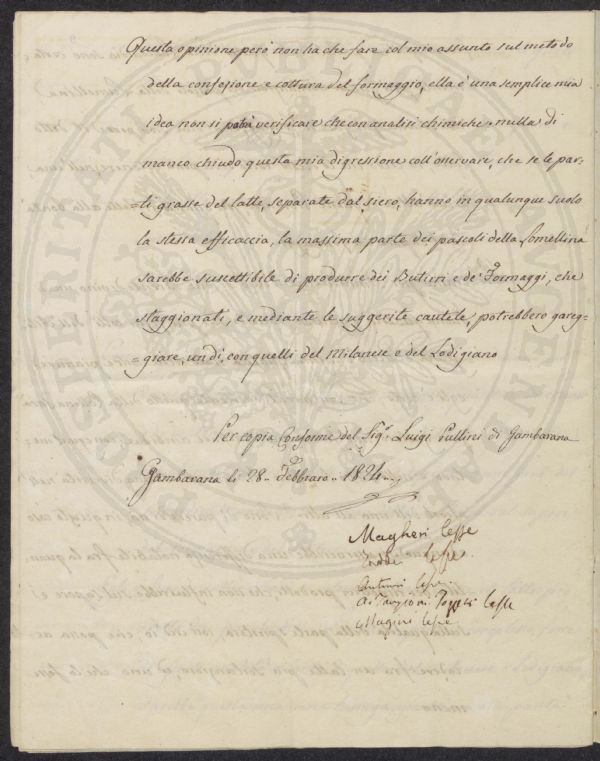 Questa opinione però non ha che fare col mio assunto sul metodo
della confezione e cottura del formaggio, ella è una semplice mia
idea non si potrà verificare che con analisi chimiche, nulla di
manco chiudo questa mia digressione coll'osservare, che se le par:
=ti grasse del latte, separate dal siero, hanno in qualunque suolo
la stessa efficaccia, la massima parte dei pascoli della Lomellina
sarebbe suscettibile di produrre dei Butirri e de' Formaggi, che
staggionati, e mediante le suggerite cautele, potrebbero gareg=
=giare, un dì, con quelli del Milanese e del Lodigiano
Per copia Conforme del Sig.r Luigi Puttini di Gambarana
Gambarana li 28 Febbraro 1824
Magheri lesse
lesse.
Antinori lesse.
Lesse
lesse